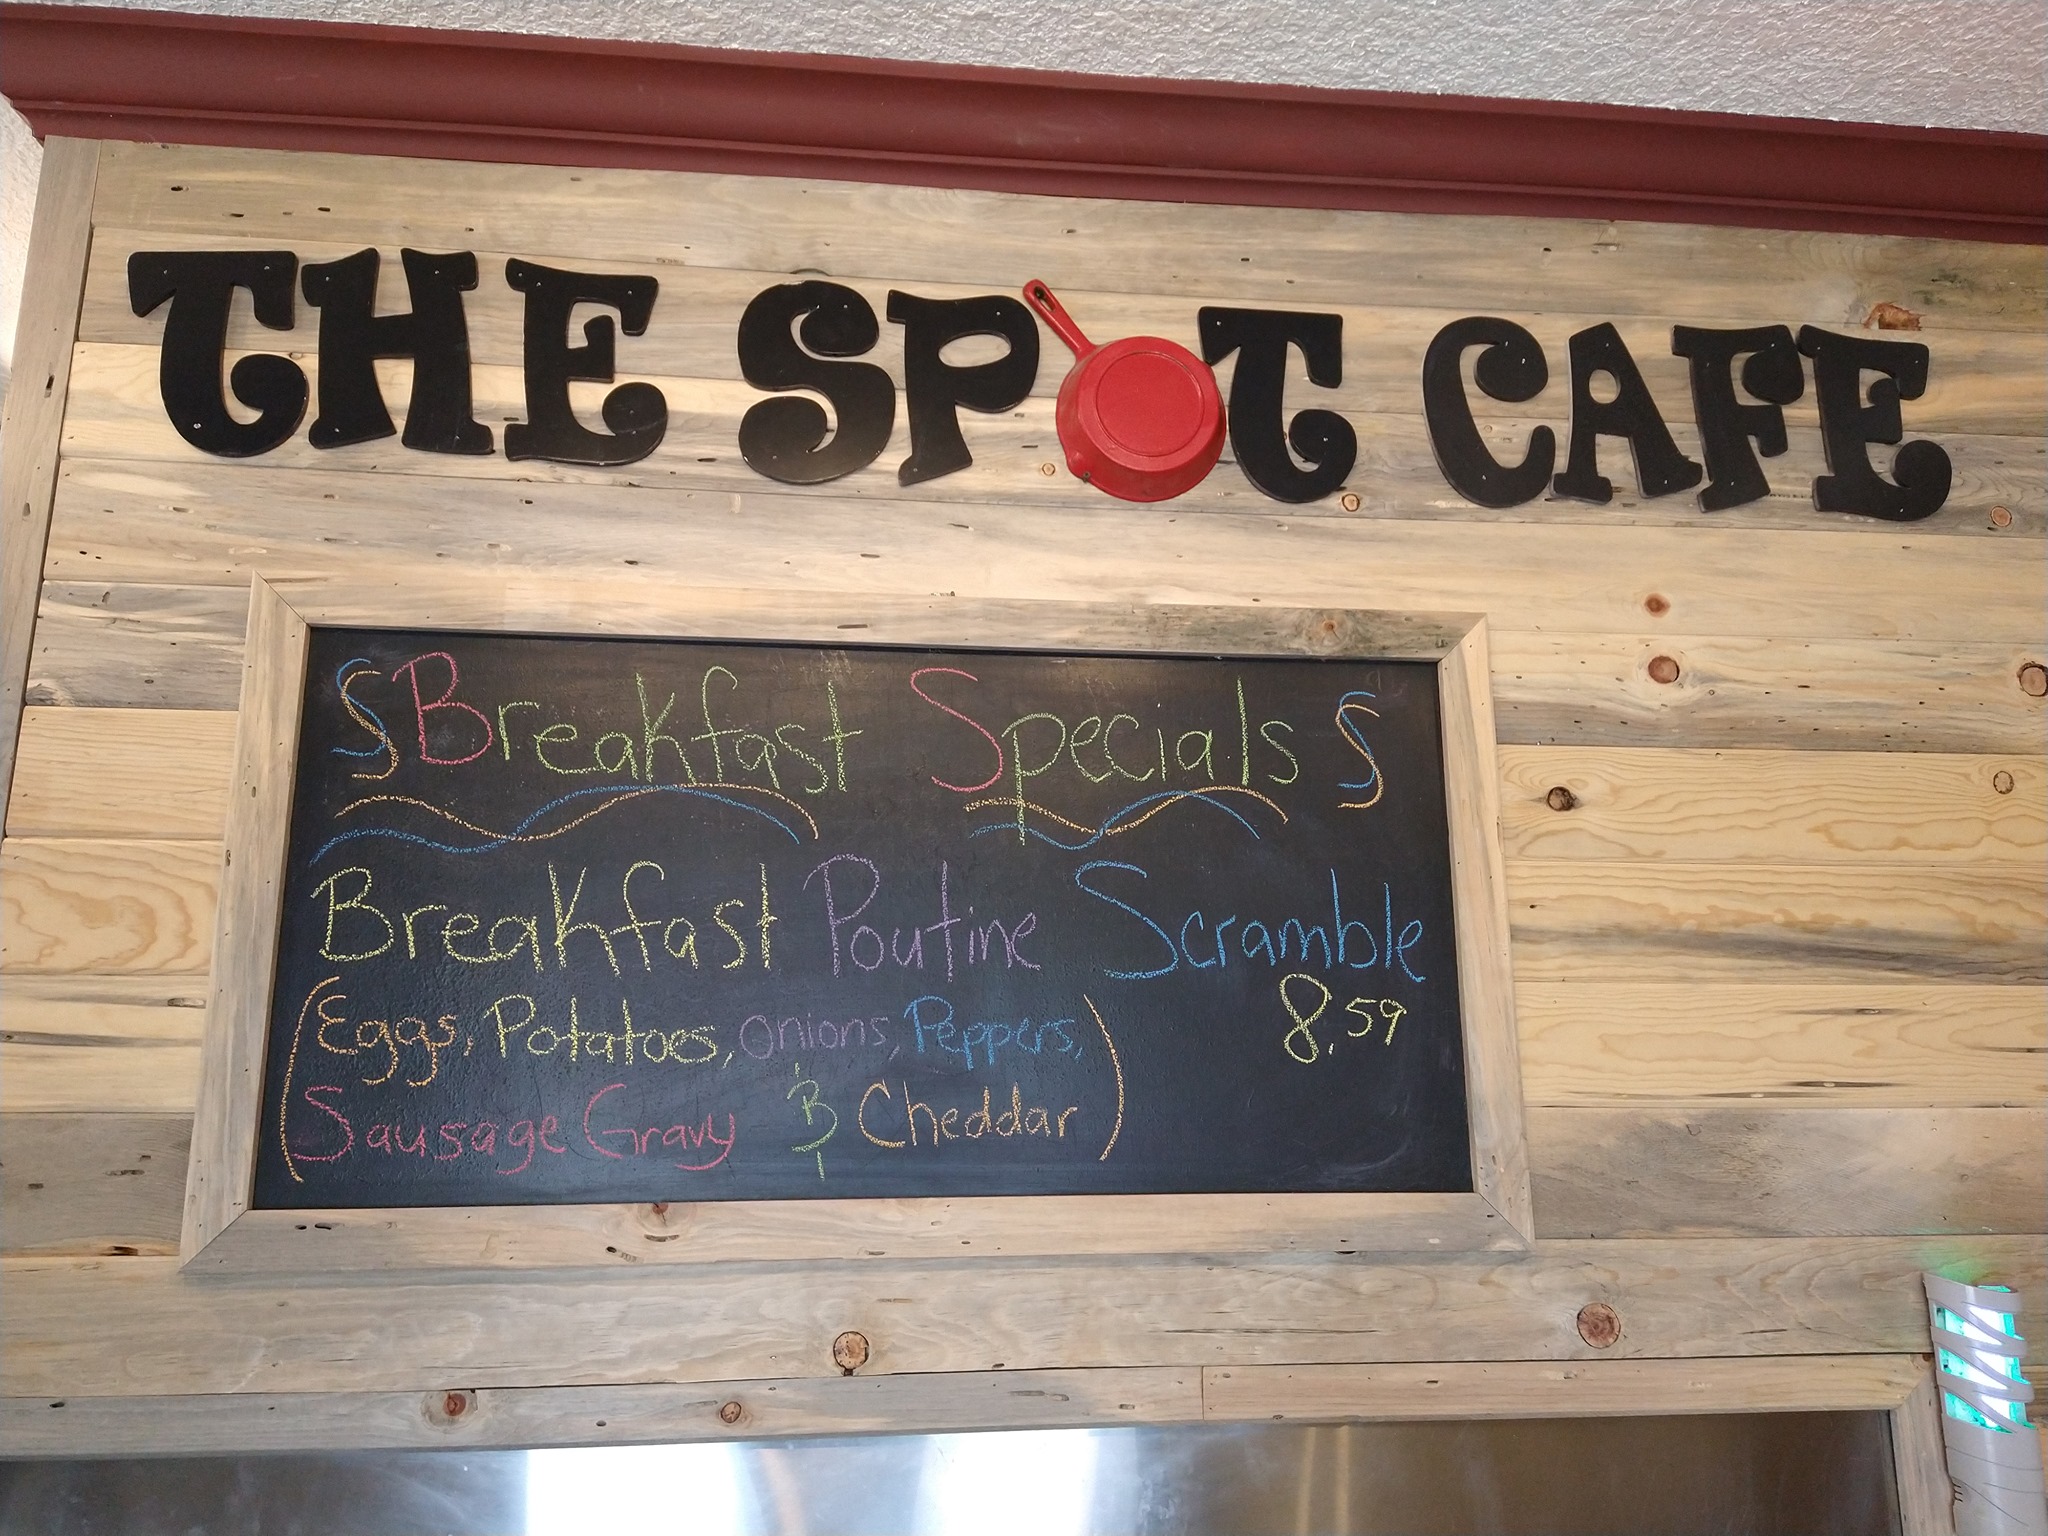 THE SPOT CAFE
Breakfast Specials
Breakfast Poutine Scramble
(Eggs, Potatoes, onions, Peppers, 8.59
Sausage Gravy & Cheddar)